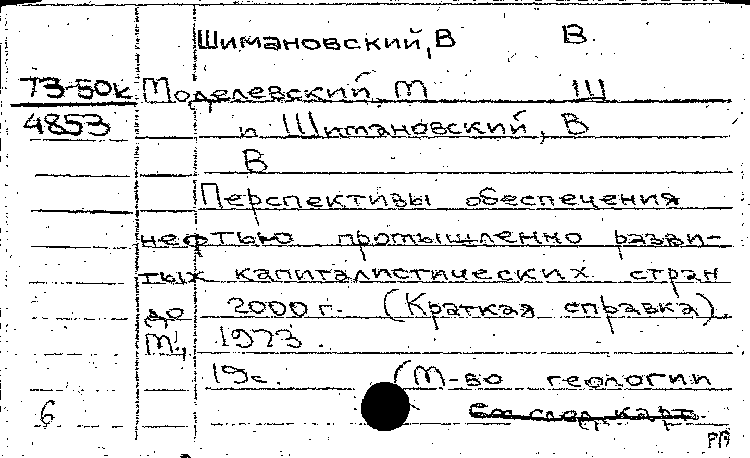 Шимановский, В В.
73-50к Моделевский, М Ш
4853 и Шимановский, В
В
Перспективы обеспечения
нефтью промышленно разви-
тых капиталистических стран
до 2000 г. (Краткая справка).
М., 1973.
19с. (М-во геологии
6 См след. карт.
РП